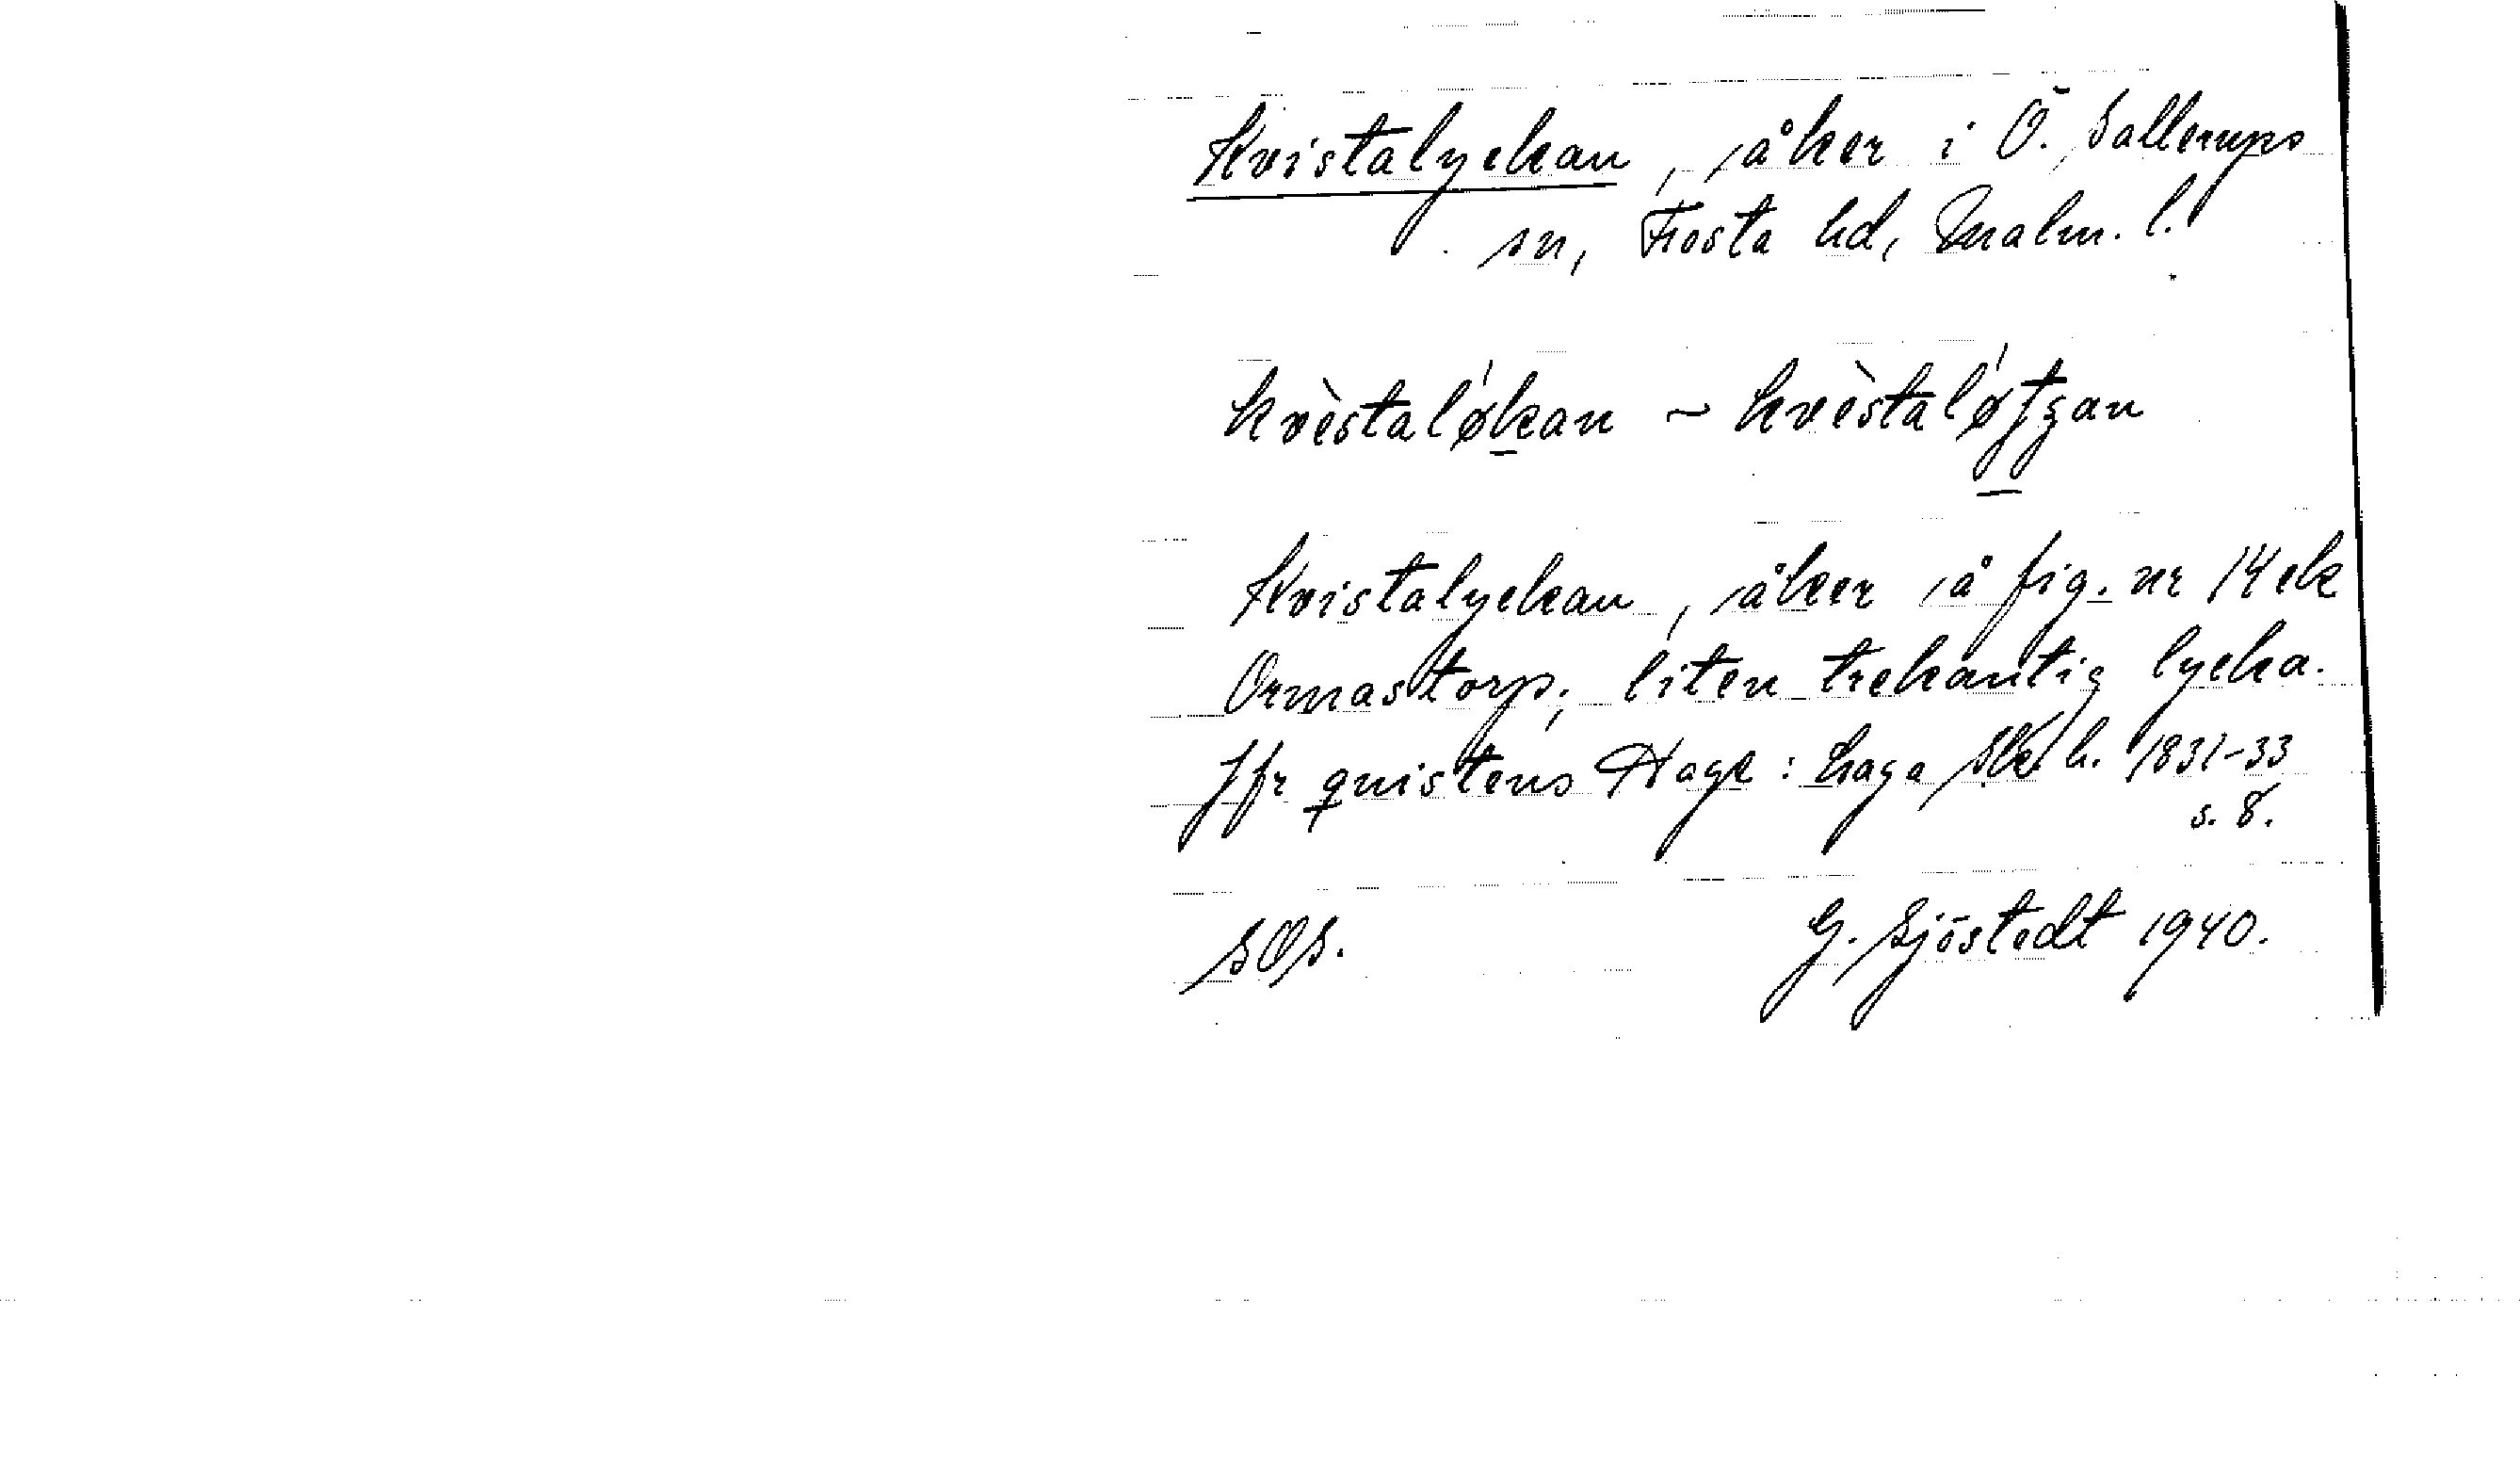 Kvistalyckan, åker i Ö. Sallerups
sn, Frosta hd, Malm. l.
kvèstaløkan ~ kvèstaløtʒan
Kvistalyckan, åker å fig. nr 14 ek
Ormastorp; liten trekantig lycka.
Jfr quistens Hage: haga Sk.h. 1831-33
s. 8.
SOS. G. Sjöstedt 1940.